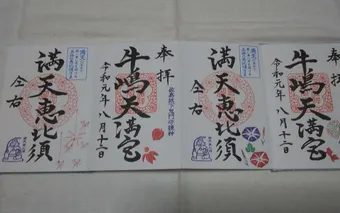 奉拝
牛嶋天満宮
令和元年八月十二日
満天恵比須
仝右
奉拝
牛嶋天満宮
令和元年八月十二日
満天恵比須
仝右